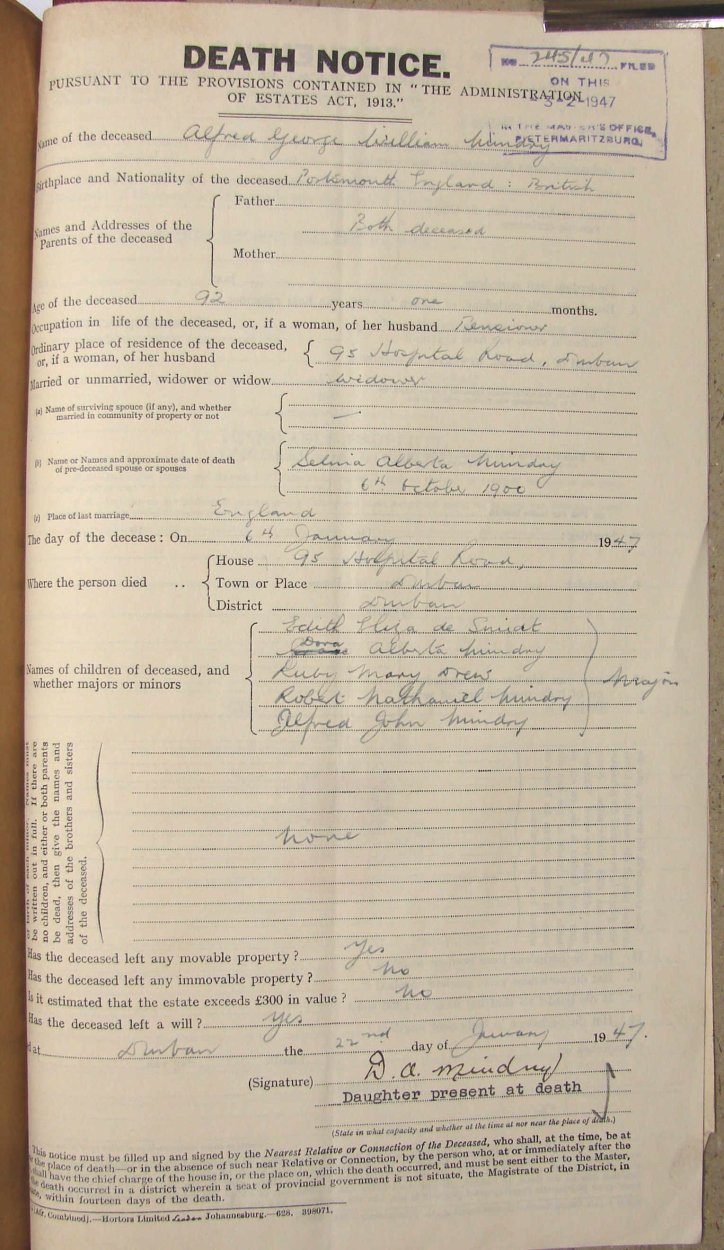 DEATH NOTICE.
PURSUANT TO THE PROVISIONS CONTAINED IN "THE ADMINISTRATION
OF ESTATES ACT, 1913."
No. 245/47 FILED
ON THIS
-3-2-1947
IN THE MASTER'S OFFICE,
PIETERMARITZBURG.
Name of the deceased Alfred George William Mundry
Birthplace and Nationality of the deceased Portsmouth England : British
Names and Addresses of the
Parents of the deceased
Father
Both deceased
Mother
Age of the deceased 92 years one months.
Occupation in life of the deceased, or, if a woman, of her husband Pensioner
Ordinary place of residence of the deceased,
or, if a woman, of her husband
95 Hospital Road, Durban
Married or unmarried, widower or widow widower
(a) Name of surviving spouse (if any), and whether
married in community of property or not
—
(b) Name or Names and approximate date of death
of pre-deceased spouse or spouses
Selina Alberta Mindry
6th October 1900
(c) Place of last marriage England
The day of the decease : On 6th January 1947
Where the person died ..
House 95 Hospital Road,
Town or Place Durban
District Durban
Names of children of deceased, and
whether majors or minors
Edith Eliza de Smidt
Dora Alberta Mindry
Ruby Mary Drew
Robert Nathaniel Mindry
Alfred John Mindry
Majors
be written out in full. If there are
no children, and either or both parents
be dead, then give the names and
addresses of the brothers and sisters
of the deceased.
none
Has the deceased left any movable property ? Yes
Has the deceased left any immovable property ? No
Is it estimated that the estate exceeds £300 in value ? No
Has the deceased left a will ? Yes
d at Durban the 22nd day of January 1947.
(Signature) D. A. Mindry
Daughter present at death
(State in what capacity and whether at the time at nor near the place of death.)
This notice must be filled up and signed by the Nearest Relative or Connection of the Deceased, who shall, at the time, be at
the place of death—or in the absence of such near Relative or Connection, by the person who, at or immediately after the
shall have the chief charge of the house in, or the place on, which the death occurred, and must be sent either to the Master,
death occurred in a district wherein a seat of provincial government is not situate, the Magistrate of the District, in
within fourteen days of the death.
Combined].—Hortors Limited Johannesburg.—628. 398071.